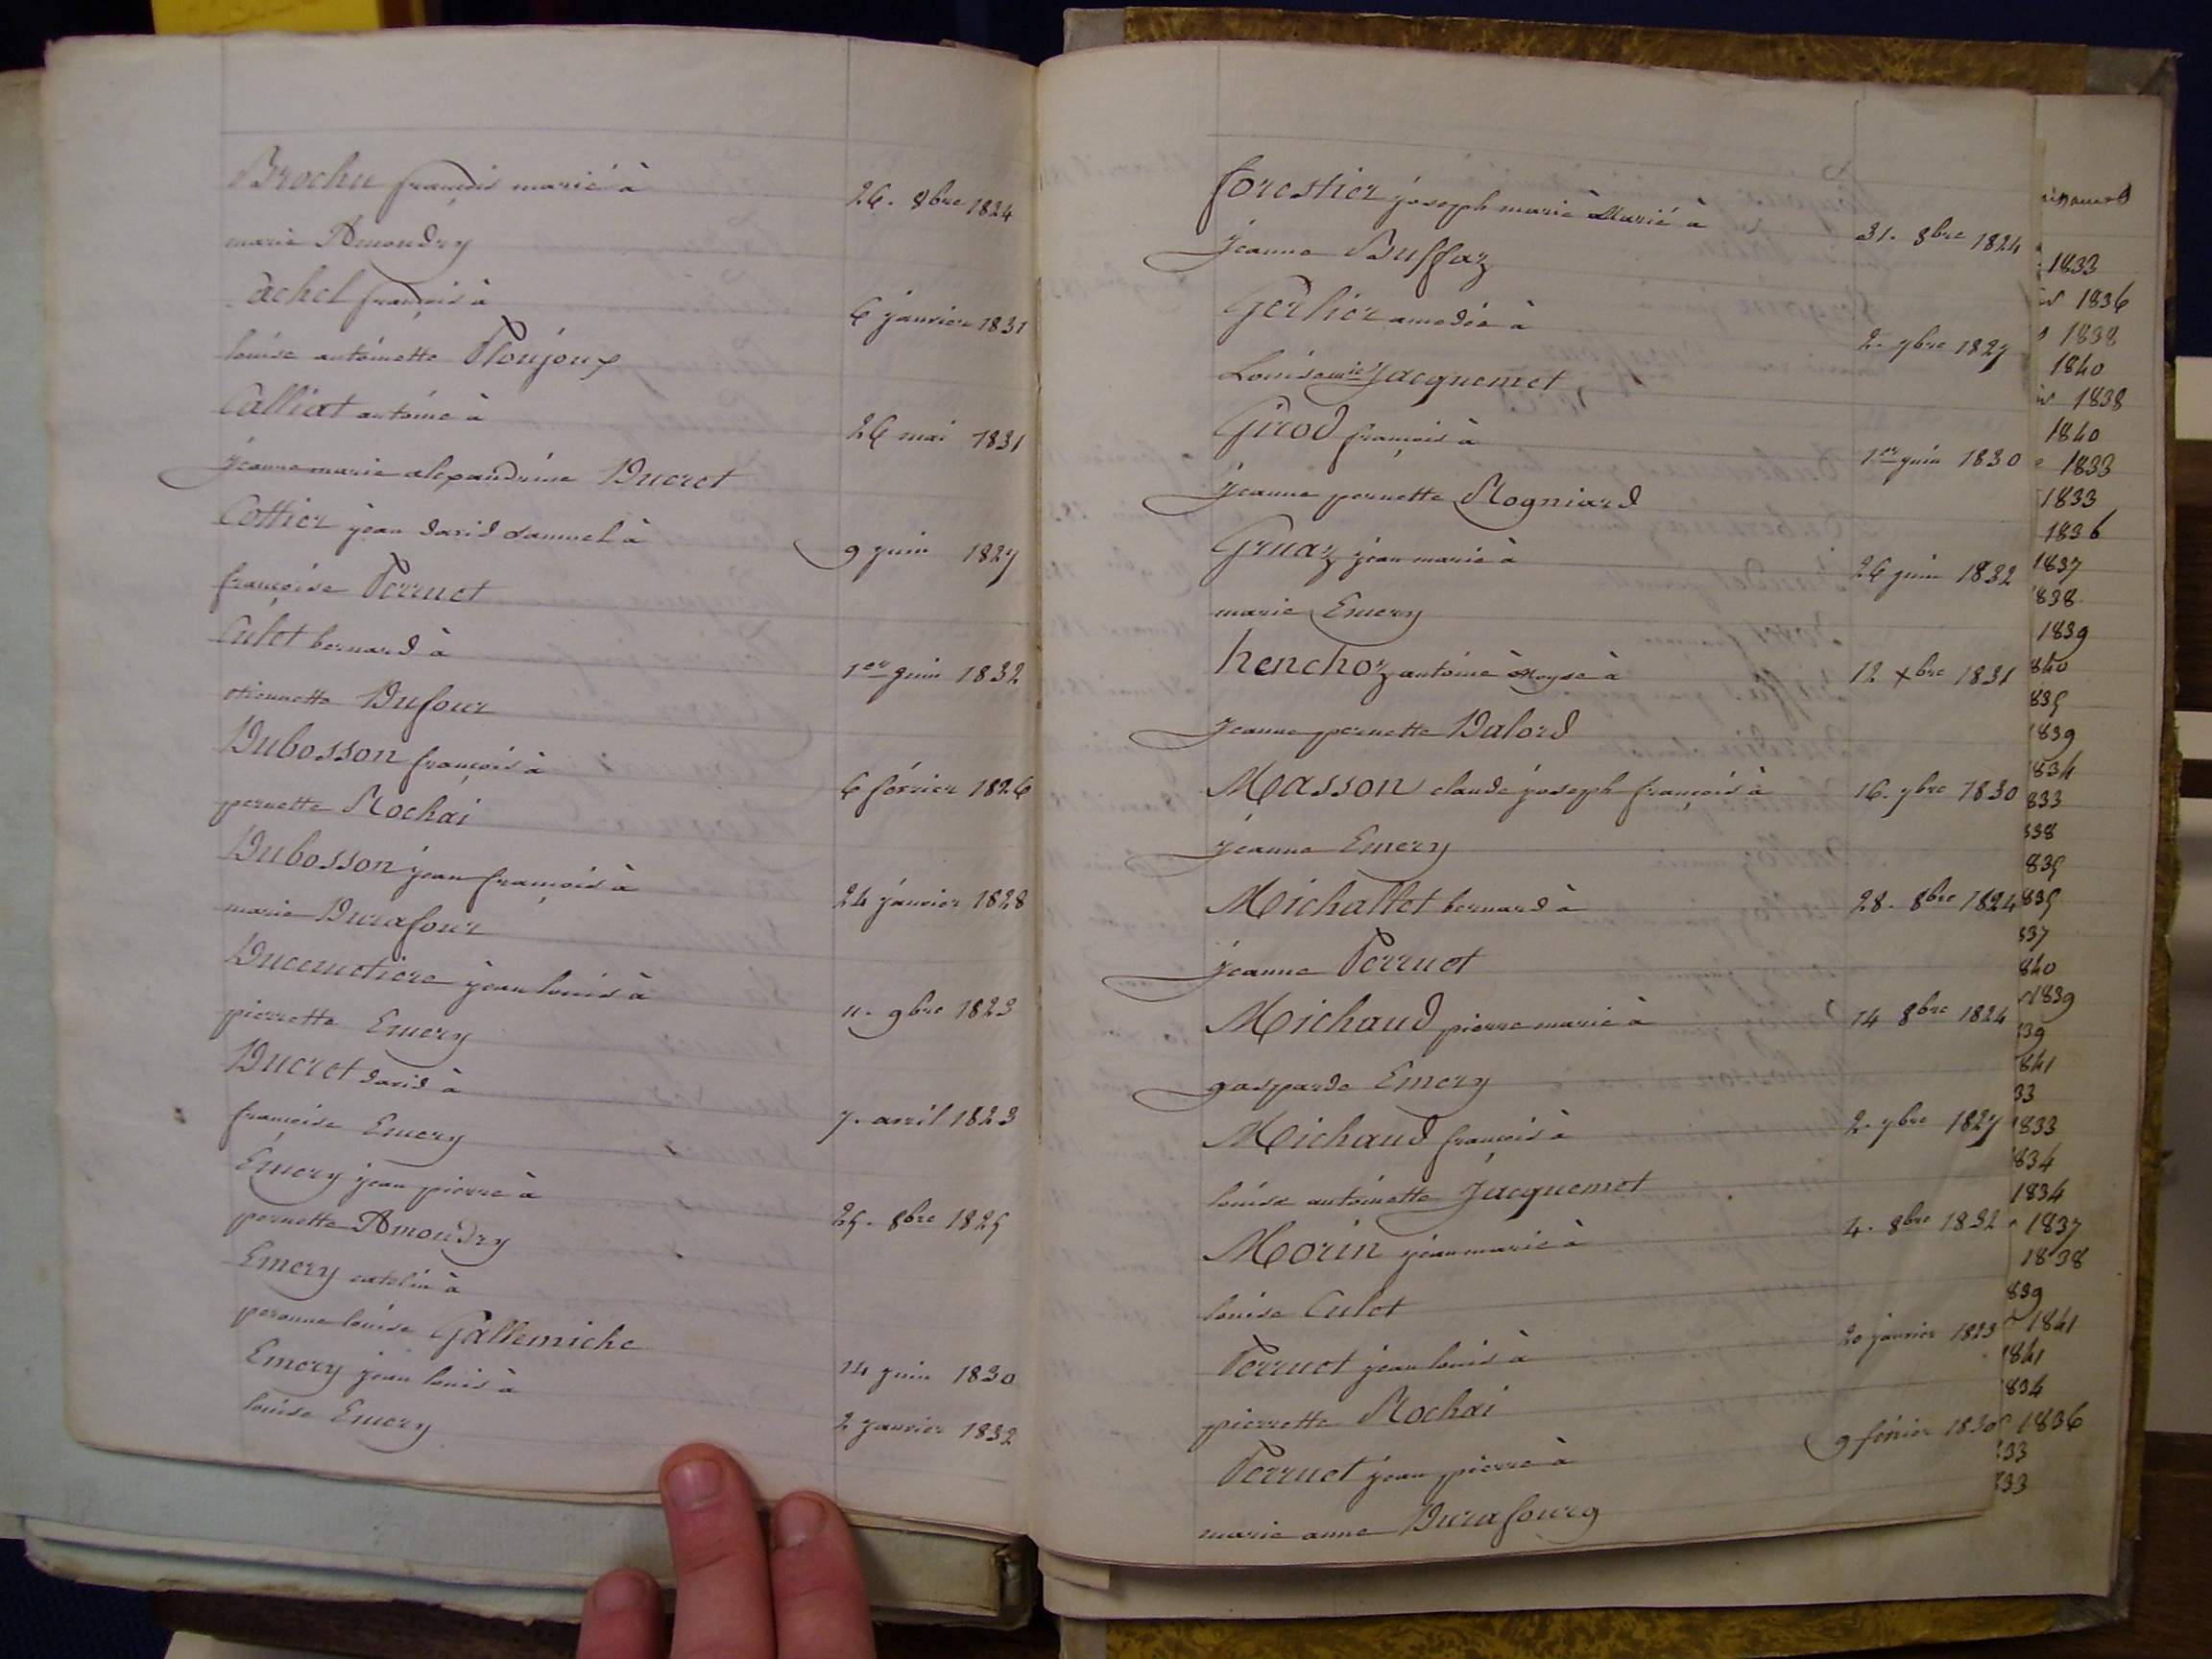 Brochu françois marié à
26. 8bre 1824
marie Amoudry
Cachet françois à
6 janvier 1831
louise antoinette Ploujoux
Calliat antoine à
26 mai 1831
jeanne marie alexandrine Ducret
Cottier jean david samuel à
9 juin 1827
françoise Perruet
Culet bernard à
1er juin 1832
etiennette Dufour
Dubosson françois à
6 février 1826
pernette Rochai
Dubosson jean françois à
24 janvier 1828
marie Durafour
Ducemetiere jean louis à
11. 9bre 1823
pierrette Emery
Ducret david à
7. avril 1823
françoise Emery
Emery jean pierre à
25. 8bre 1825
pernette Amoudry
Emery à
peronne louise Gallemiche
14 juin 1830
Emery jean louis à
louise Emery
2 janvier 1832
forestier joseph marie Marié à
31. 8bre 1824
jeanne Buffaz
Gerlier amedée à
2. 7bre 1827
Louise Jacquemet
Girod françois à
1er juin 1830
jeanne pernette Rogniard
Gruaz jean marie à
26 juin 1832
marie Emery
henchoz antoine Moyse à
12 xbre 1831
Jeanne pernette Dalord
Masson claude joseph françois à
16. 7bre 1830
jeanne Emery
Michallet bernard à
28. 8bre 1824
jeanne Perruet
Michaud pierre marie à
14 8bre 1824
gasparde Emery
Michaud françois à
2. 7bre 1827
louise antoinette Jacquemet
Morin jean marie à
4. 8bre 1832
louise Culet
Perruet jean louis à
20 janvier 1823
pierrette Rochai
Perruet jean pierre à
9 février 1830
marie anne Durafourg
1833
1836
1838
1840
1838
1840
1833
1833
1836
1837
838
1839
840
835
1839
834
833
838
835
835
837
840
1839
39
841
33
1833
834
1834
1837
1838
839
1841
1841
834
1836
33
33